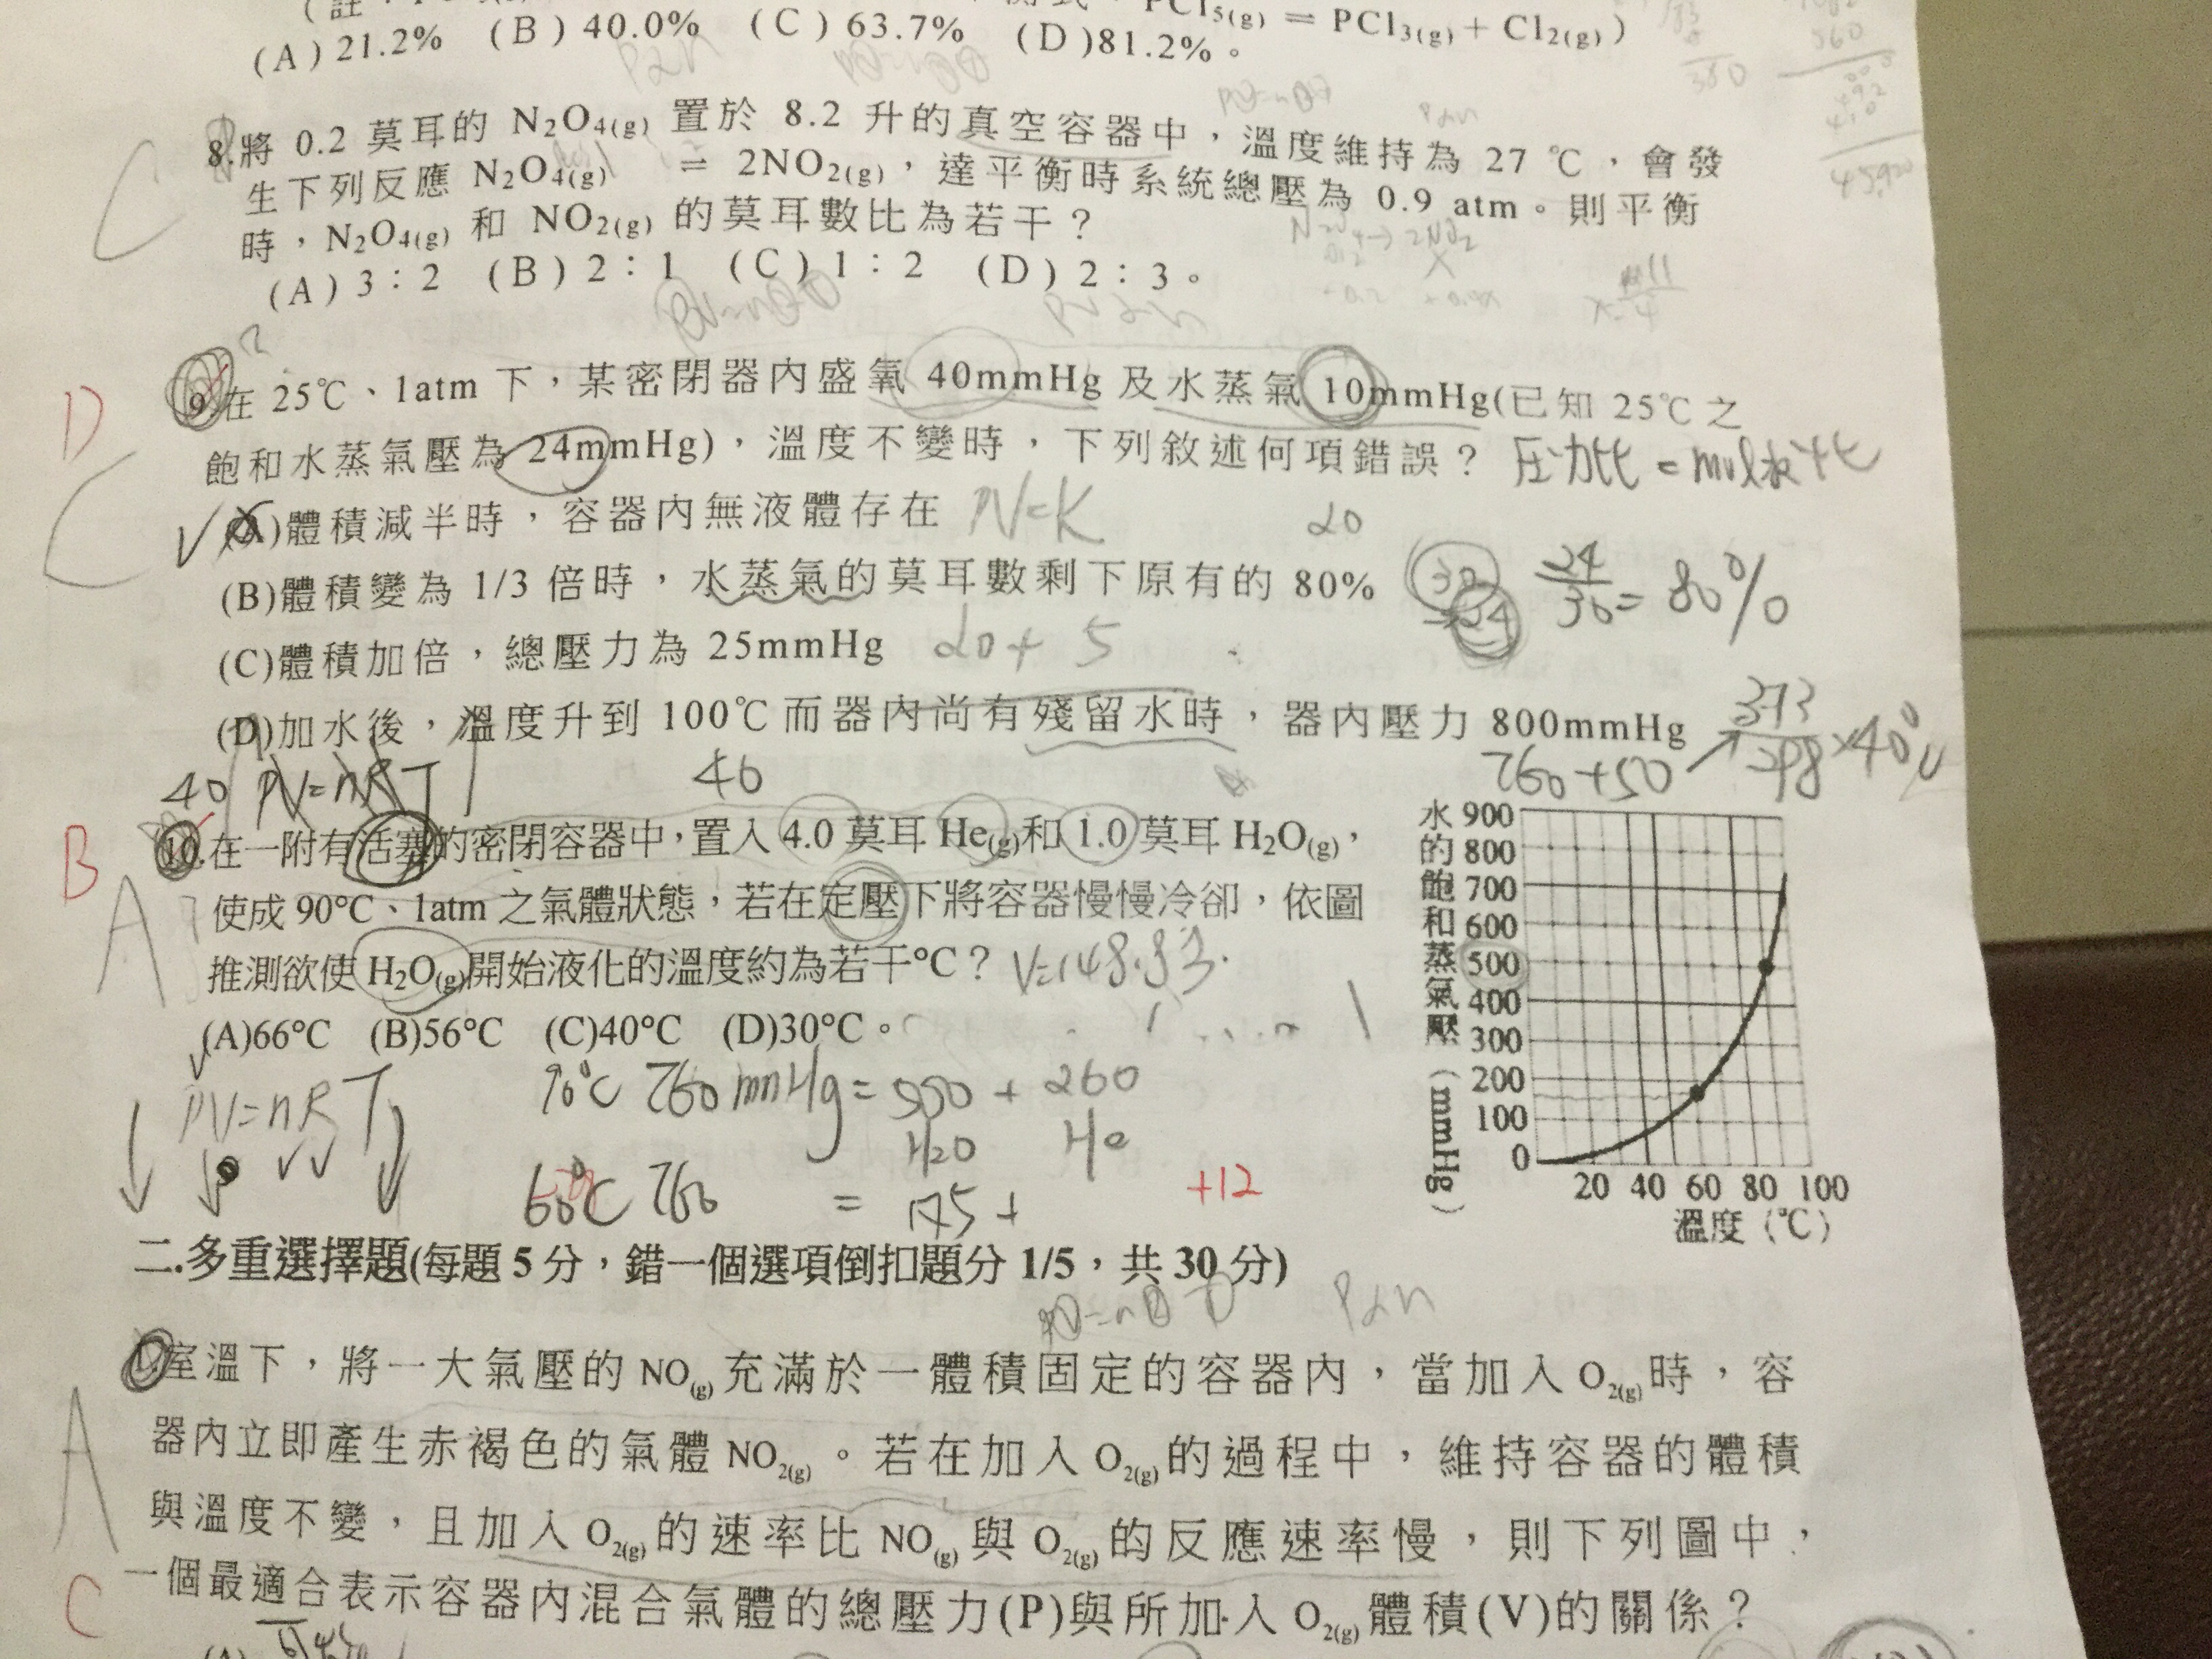 PCl5(g) ⇌ PCl3(g) + Cl2(g) )
(A)21.2% (B)40.0% (C)63.7% (D)81.2%。
8.將 0.2 莫耳的 N2O4(g) 置於 8.2 升的真空容器中,溫度維持為 27 ℃,會發
生下列反應 N2O4(g) ⇌ 2NO2(g),達平衡時系統總壓為 0.9 atm。則平衡
時,N2O4(g) 和 NO2(g) 的莫耳數比為若干?
(A)3:2 (B)2:1 (C)1:2 (D)2:3。
C
9.在 25℃、1atm 下,某密閉器內盛氧 40mmHg 及水蒸氣 10mmHg(已知 25℃之
飽和水蒸氣壓為 24mmHg),溫度不變時,下列敘述何項錯誤?
D
C
(A)體積減半時,容器內無液體存在 PV=K
20
(B)體積變為 1/3 倍時,水蒸氣的莫耳數剩下原有的 80% 30 24 24/30 = 80%
(C)體積加倍,總壓力為 25mmHg 20+5
(D)加水後,溫度升到 100℃而器內尚有殘留水時,器內壓力 800mmHg
40 PV=nRT 40 760+50 373/298×40
10.在一附有活塞的密閉容器中,置入 4.0 莫耳 He(g)和 1.0 莫耳 H2O(g),
使成 90°C、1atm 之氣體狀態,若在定壓下將容器慢慢冷卻,依圖
推測欲使 H2O(g)開始液化的溫度約為若干°C? V=148.83
(A)66°C (B)56°C (C)40°C (D)30°C。
B
A
水的飽和蒸氣壓(mmHg)
900
800
700
600
500
400
300
200
100
0
20 40 60 80 100
溫度(℃)
PV=nRT
90°C 760mmHg = 500 + 260
H2O He
60°C 760 = 175+
+12
二.多重選擇題(每題 5 分,錯一個選項倒扣題分 1/5,共 30 分)
1.室溫下,將一大氣壓的 NO(g)充滿於一體積固定的容器內,當加入 O2(g)時,容
器內立即產生赤褐色的氣體 NO2(g)。若在加入 O2(g)的過程中,維持容器的體積
與溫度不變,且加入 O2(g)的速率比 NO(g)與 O2(g)的反應速率慢,則下列圖中,
一個最適合表示容器內混合氣體的總壓力(P)與所加入 O2(g)體積(V)的關係?
A
C
(A)